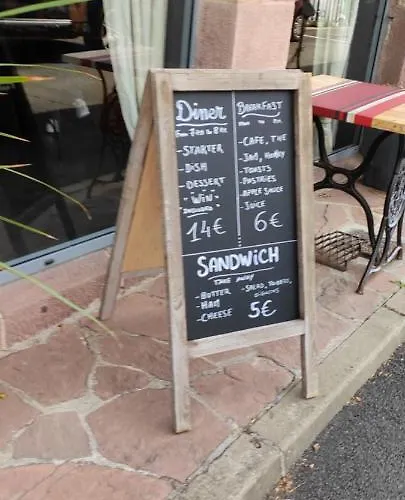 Diner
From 7PM to 8PM
-STARTER
-DISH
-DESSERT
WIN
INCLUDED
14€
BREAKFAST
-CAFE, THE
-JAM, HONEY
-TOASTS
-PASTRIES
-APPLE SAUCE
-JUICE
6€
SANDWiCH
TAKE AWAY
-BUTTER
-HAM
-CHEESE
-SALAD,
5€